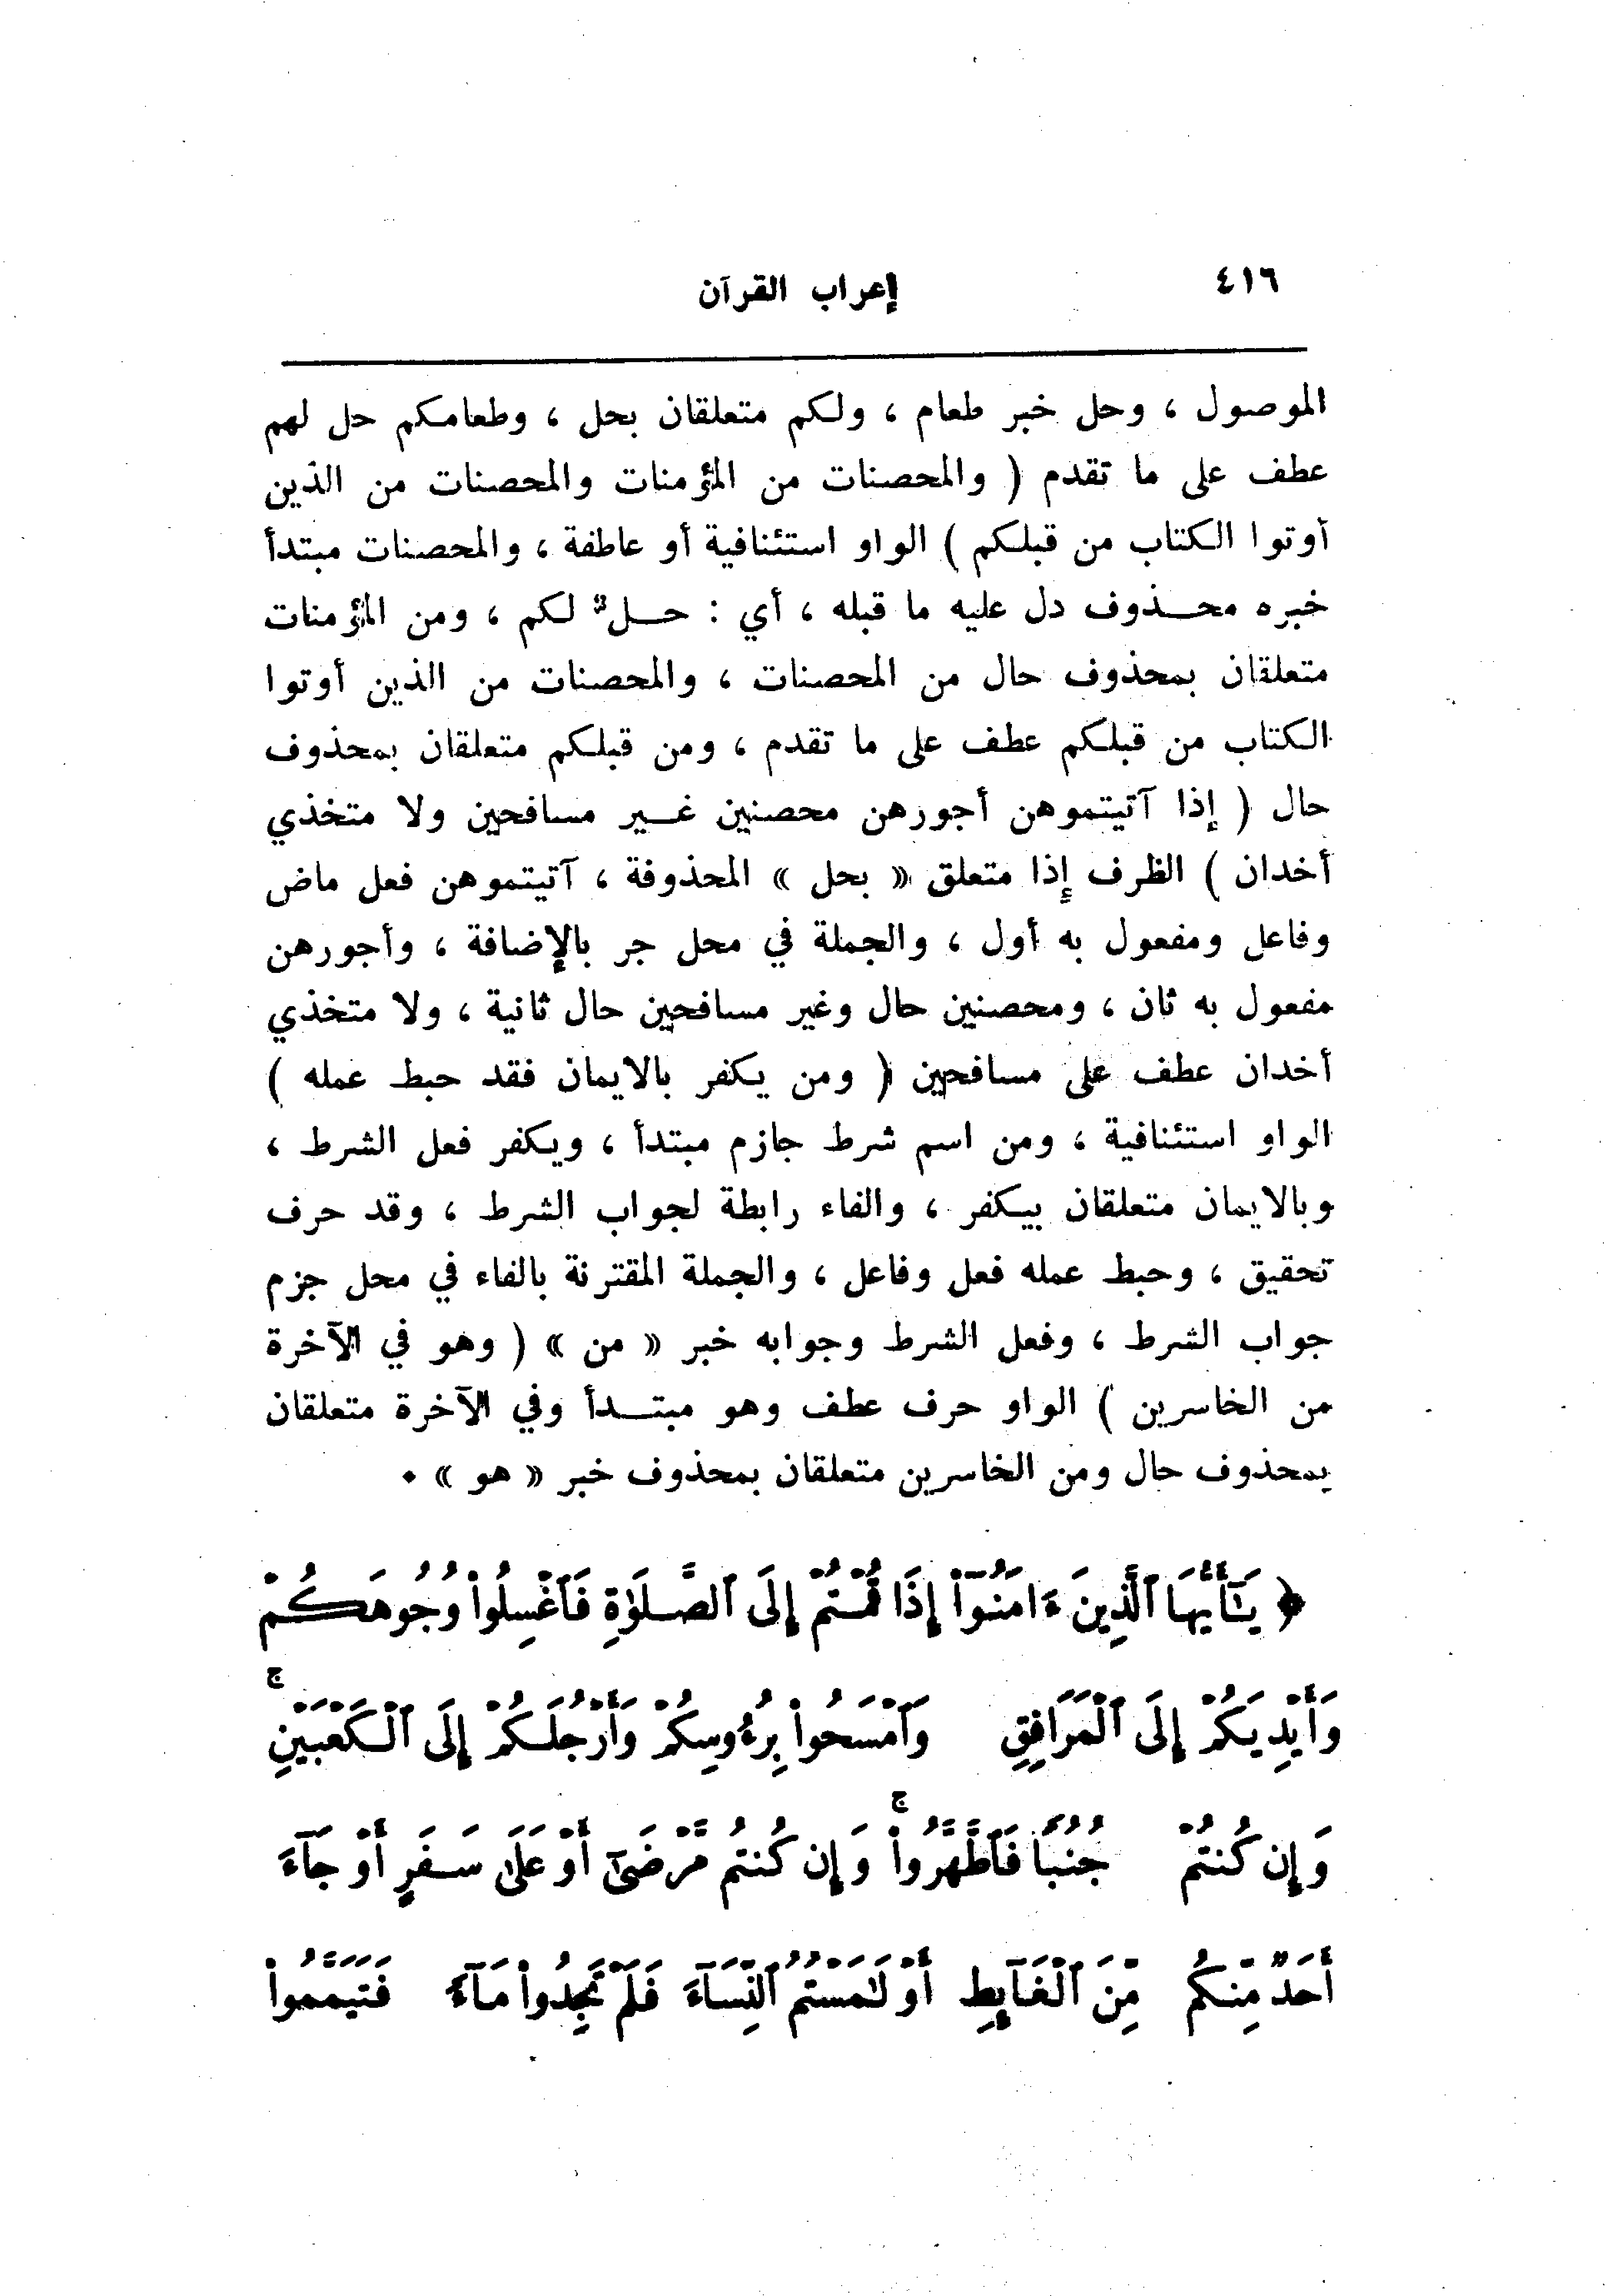 ٤١٦ إعراب القرآن
الموصول ، وحل خبر طعام ، ولكم متعلقان بحل ، وطعامكم حل لهم
عطف على ما تقدم ( والمحصنات من المؤمنات والمحصنات من الذين
أوتوا الكتاب من قبلكم ) الواو استئنافية أو عاطفة ، والمحصنات مبتدأ
خبره محـــذوف دل عليه ما قبله ، أي : حـــلٌّ لكم ، ومن المؤمنات
متعلقان بمحذوف حال من المحصنات ، والمحصنات من الذين أوتوا
الكتاب من قبلكم عطف على ما تقدم ، ومن قبلكم متعلقان بمحذوف
حال ( إذا آتيتموهن أجورهن محصنين غـــير مسافحين ولا متخذي
أخدان ) الظرف إذا متعلق « بحل » المحذوفة ، آتيتموهن فعل ماض
وفاعل ومفعول به أول ، والجملة في محل جر بالإضافة ، وأجورهن
مفعول به ثان ، ومحصنين حال وغير مسافحين حال ثانية ، ولا متخذي
أخدان عطف على مسافحين ( ومن يكفر بالايمان فقد حبط عمله )
الواو استئنافية ، ومن اسم شرط جازم مبتدأ ، ويكفر فعل الشرط ،
وبالايمان متعلقان بيكفر ، والفاء رابطة لجواب الشرط ، وقد حرف
تحقيق ، وحبط عمله فعل وفاعل ، والجملة المقترنة بالفاء في محل جزم
جواب الشرط ، وفعل الشرط وجوابه خبر « من » ( وهو في الآخرة
من الخاسرين ) الواو حرف عطف وهو مبتـــدأ وفي الآخرة متعلقان
بمحذوف حال ومن الخاسرين متعلقان بمحذوف خبر « هو » .
﴿ يَٰٓأَيُّهَا ٱلَّذِينَ ءَامَنُوٓا۟ إِذَا قُمْتُمْ إِلَى ٱلصَّلَوٰةِ فَٱغْسِلُوا۟ وُجُوهَكُمْ
وَأَيْدِيَكُمْ إِلَى ٱلْمَرَافِقِ وَٱمْسَحُوا۟ بِرُءُوسِكُمْ وَأَرْجُلَكُمْ إِلَى ٱلْكَعْبَيْنِ ۚ
وَإِن كُنتُمْ جُنُبًا فَٱطَّهَّرُوا۟ ۚ وَإِن كُنتُم مَّرْضَىٰٓ أَوْ عَلَىٰ سَفَرٍ أَوْ جَآءَ
أَحَدٌ مِّنكُم مِّنَ ٱلْغَآئِطِ أَوْ لَٰمَسْتُمُ ٱلنِّسَآءَ فَلَمْ تَجِدُوا۟ مَآءً فَتَيَمَّمُوا۟